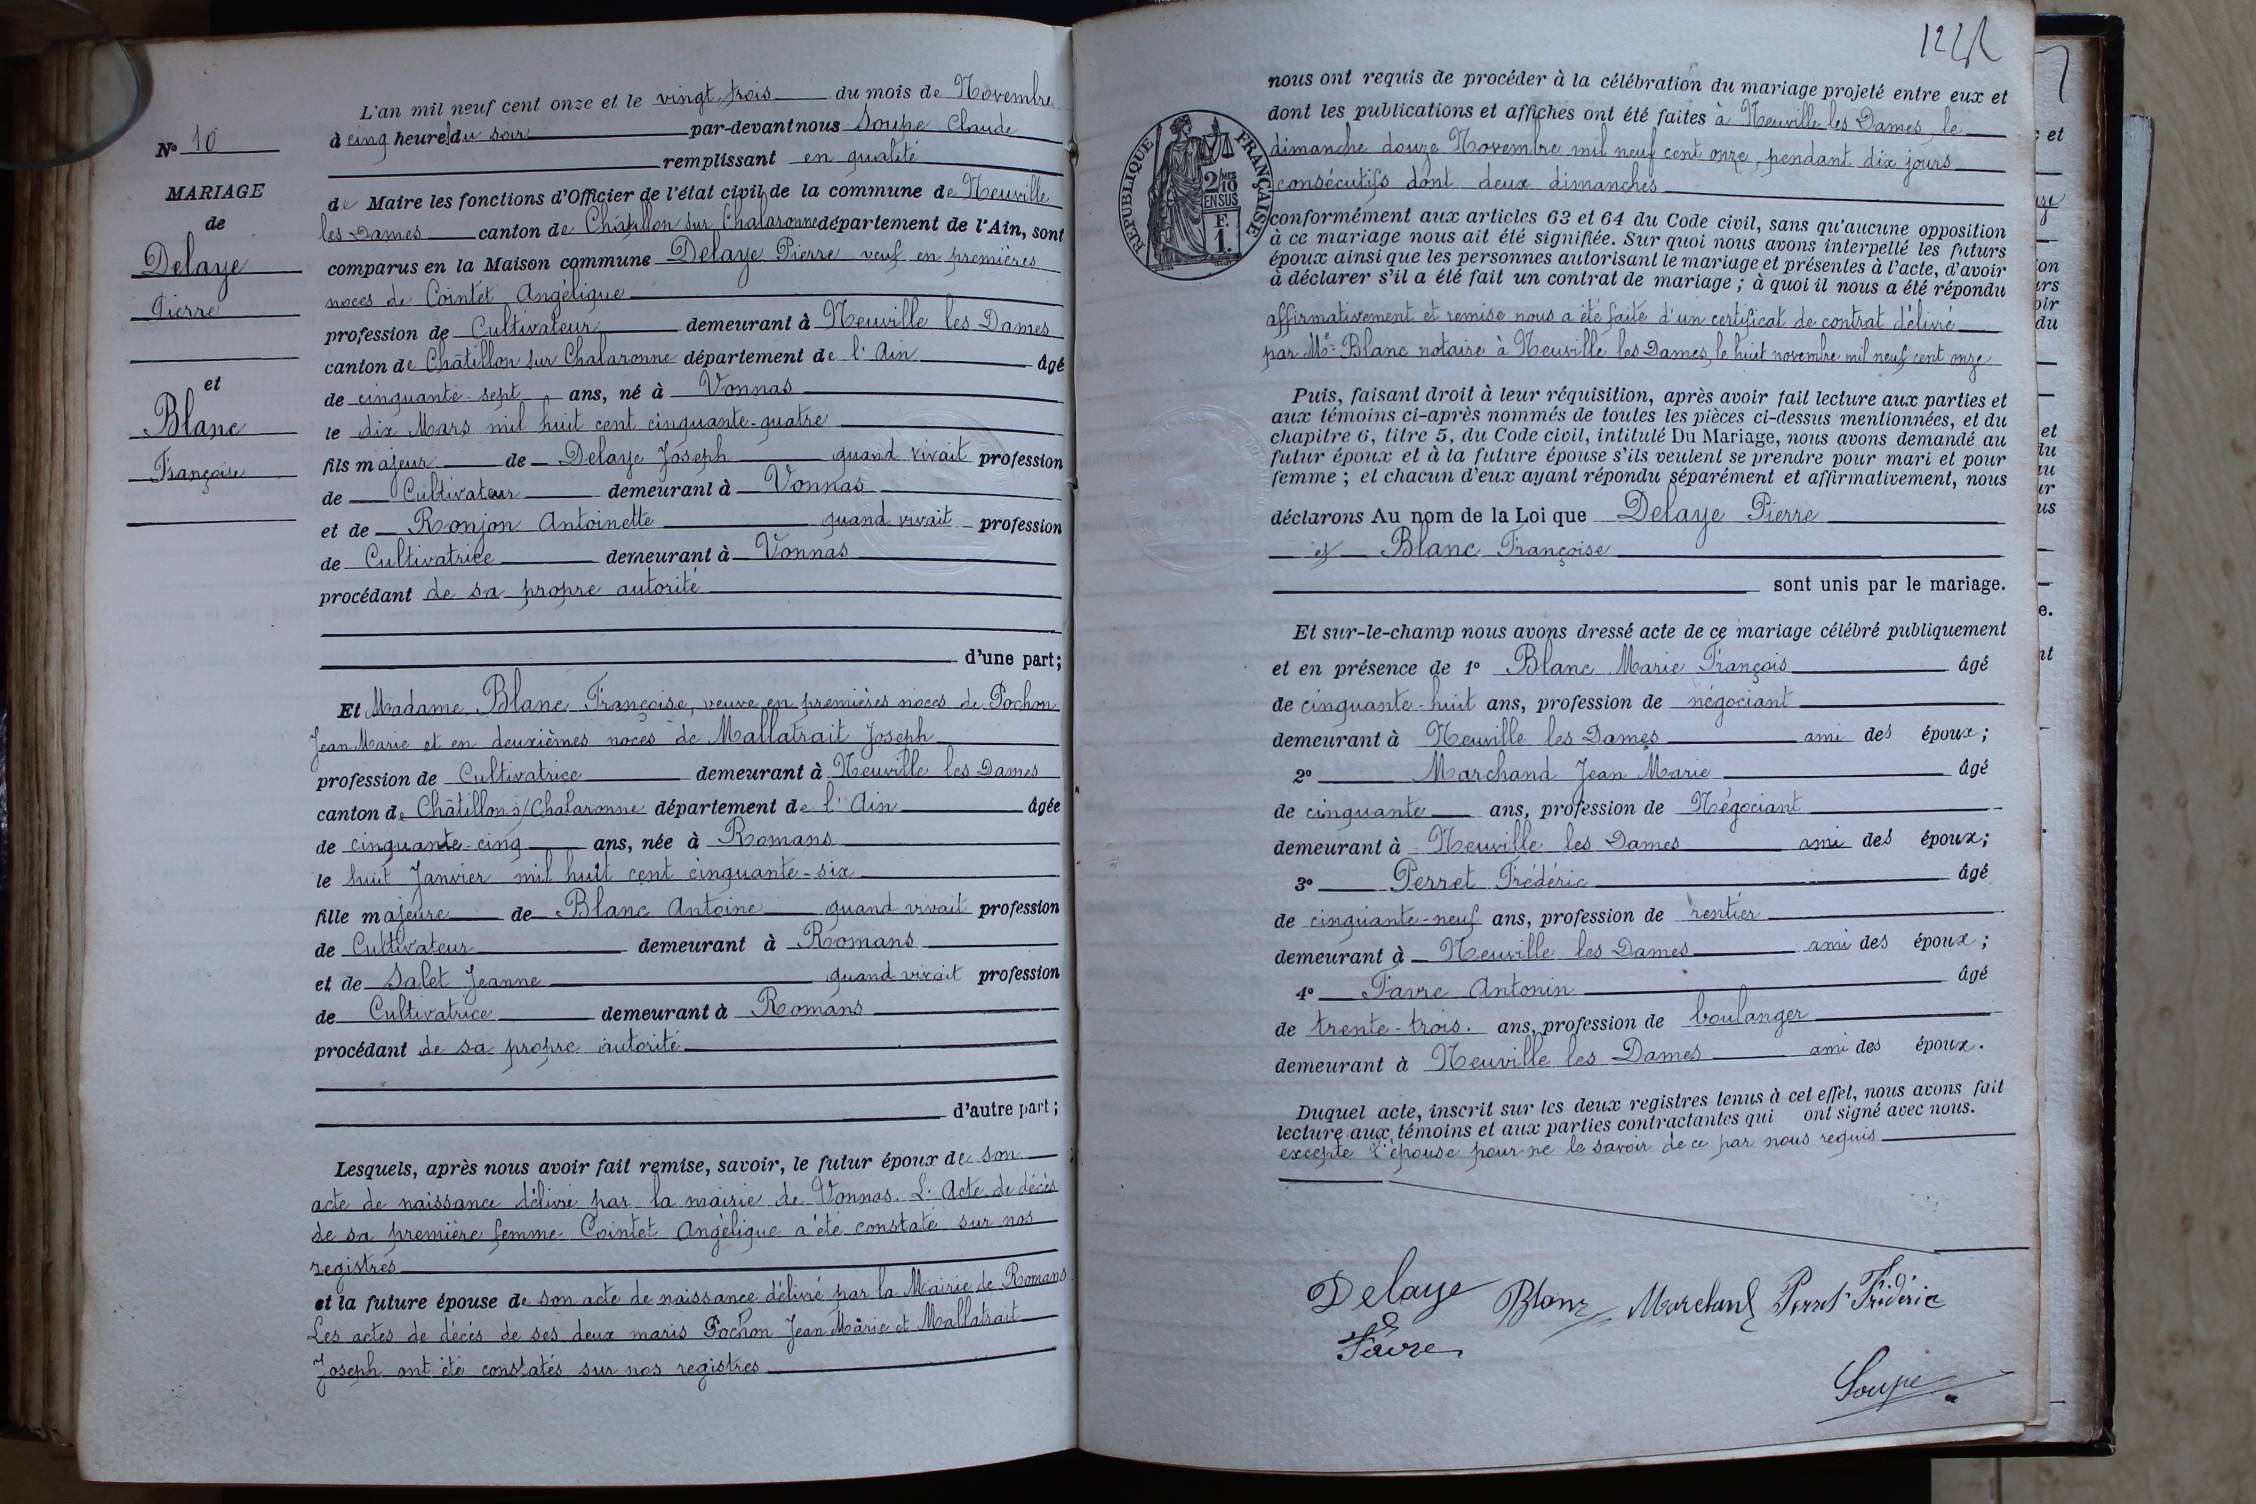 N° 10
MARIAGE
de
Delaye
Pierre
et
Blanc
Françoise
L'an mil neuf cent onze et le vingt trois du mois de Novembre
à cinq heures du soir par-devant nous Soupe Claude
remplissant en qualité
de Maire les fonctions d'Officier de l'état civil de la commune de Neuville
les Dames canton de Châtillon sur Chalaronne département de l'Ain, sont
comparus en la Maison commune Delaye Pierre veuf en premières
noces de Cointet Angélique
profession de Cultivateur demeurant à Neuville les Dames
canton de Châtillon sur Chalaronne département de l'Ain âgé
de cinquante-sept ans, né à Vonnas
le dix Mars mil huit cent cinquante-quatre
fils majeur de Delaye Joseph quand vivait profession
de Cultivateur demeurant à Vonnas
et de Ronjon Antoinette quand vivait profession
de Cultivatrice demeurant à Vonnas
procédant de sa propre autorité
d'une part;
Et Madame Blanc Françoise, veuve en premières noces de Pochon
Jean Marie et en deuxièmes noces de Mallatrait Joseph
profession de Cultivatrice demeurant à Neuville les Dames
canton de Châtillon s/Chalaronne département de l'Ain âgée
de cinquante-cinq ans, née à Romans
le huit Janvier mil huit cent cinquante-six
fille majeure de Blanc Antoine quand vivait profession
de Cultivateur demeurant à Romans
et de Salet Jeanne quand vivait profession
de Cultivatrice demeurant à Romans
procédant de sa propre autorité
d'autre part;
Lesquels, après nous avoir fait remise, savoir, le futur époux de son
acte de naissance délivré par la mairie de Vonnas. L'Acte de décès
de sa première femme Cointet Angélique a été constaté sur nos
registres
et la future épouse de son acte de naissance délivré par la Mairie de Romans
Les actes de décès de ses deux maris Pochon Jean Marie et Mallatrait
Joseph ont été constatés sur nos registres
nous ont requis de procéder à la célébration du mariage projeté entre eux et
dont les publications et affiches ont été faites à Neuville les Dames, le
dimanche douze Novembre mil neuf cent onze, pendant dix jours
consécutifs dont deux dimanches
REPUBLIQUE FRANÇAISE
2/10
MES
EN SUS
F.
1.
conformément aux articles 63 et 64 du Code civil, sans qu'aucune opposition
à ce mariage nous ait été signifiée. Sur quoi nous avons interpellé les futurs
époux ainsi que les personnes autorisant le mariage et présentes à l'acte, d'avoir
à déclarer s'il a été fait un contrat de mariage ; à quoi il nous a été répondu
affirmativement et remise nous a été faite d'un certificat de contrat délivré
par Me Blanc notaire à Neuville les Dames, le huit novembre mil neuf cent onze
Puis, faisant droit à leur réquisition, après avoir fait lecture aux parties et
aux témoins ci-après nommés de toutes les pièces ci-dessus mentionnées, et du
chapitre 6, titre 5, du Code civil, intitulé Du Mariage, nous avons demandé au
futur époux et à la future épouse s'ils veulent se prendre pour mari et pour
femme ; et chacun d'eux ayant répondu séparément et affirmativement, nous
déclarons Au nom de la Loi que Delaye Pierre
et Blanc Françoise
sont unis par le mariage.
Et sur-le-champ nous avons dressé acte de ce mariage célébré publiquement
et en présence de 1° Blanc Marie François âgé
de cinquante-huit ans, profession de négociant
demeurant à Neuville les Dames ami des époux ;
2° Marchand Jean Marie âgé
de cinquante ans, profession de Négociant
demeurant à Neuville les Dames ami des époux ;
3° Perret Frédéric âgé
de cinquante-neuf ans, profession de rentier
demeurant à Neuville les Dames ami des époux ;
4° Favre Antonin âgé
de trente-trois. ans, profession de boulanger
demeurant à Neuville les Dames ami des époux.
Duquel acte, inscrit sur les deux registres tenus à cet effet, nous avons fait
lecture aux témoins et aux parties contractantes qui ont signé avec nous.
excepté l'épouse pour ne le savoir de ce par nous requis
Delaye Blanc Marchand Perret Frédéric
Favre
Soupe